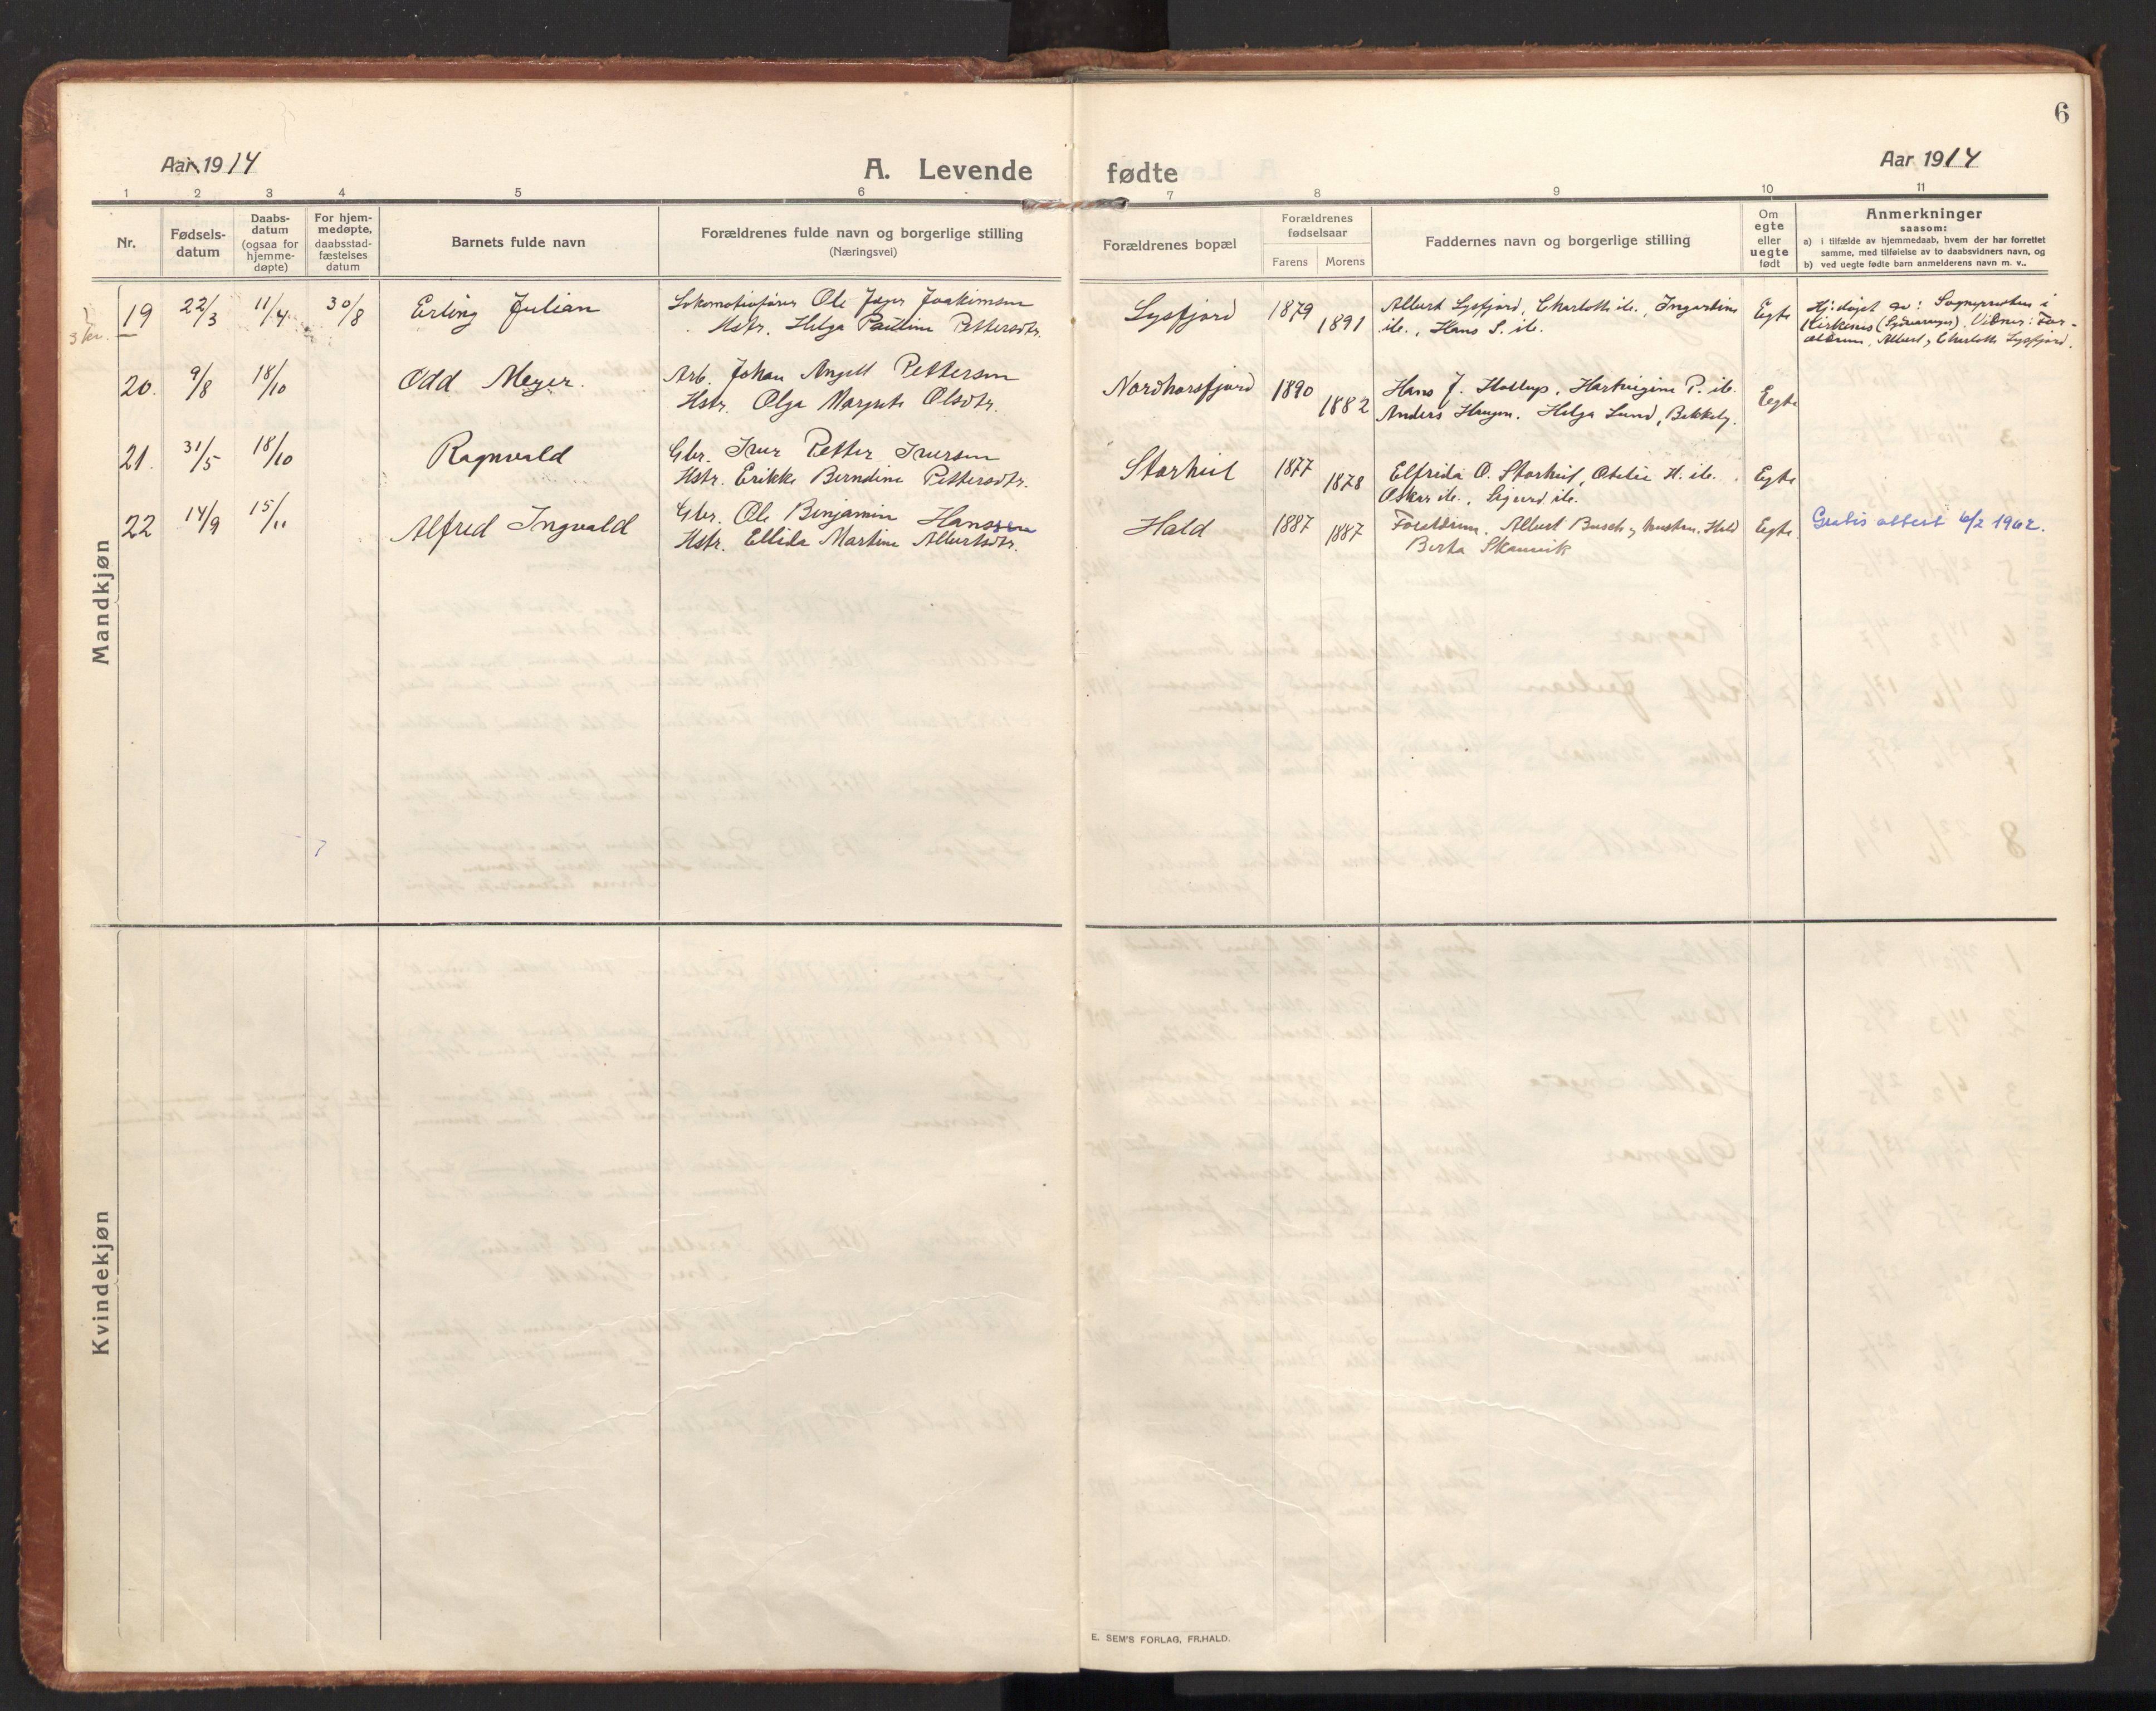 6
Aar 1914
A. Levende
fødte
Aar 1914
1 2 3 4 5 6 7 8 9 10 11
Nr.
Fødsels-
datum
Daabs-
datum
(ogsaa for
hjemme-
døpte)
For hjem-
medøpte,
daabsstad-
fæstelses
datum
Barnets fulde navn
Forældrenes fulde navn og borgerlige stilling
(Næringsvei)
Forældrenes bopæl
Forældrenes
fødselsaar
Farens Morens
Faddernes navn og borgerlige stilling
Om
egte
eller
uegte
født
Anmerkninger
saasom:
a) i tilfælde av hjemmedaab, hvem der har forrettet
samme, med tilføielse av to daabsvidners navn, og
b) ved uegte fødte barn anmelderens navn m. v..
Mandkjøn
3 kr.
19 22/3 11/4 30/8 Erling Julian
Lokomotivfører Ole Jager Joakimsen
Hstr. Helga Pauline Pettersdtr.
Lysfjord 1879 1891
Albert Lysfjord, Charlotte ib., Ingertine
ib., Hans S. ib.
Egte
Hj. døpt av: Sognepresten i
Kirkenes (Sydvaranger). Vidner: For-
ældrene, Albert og Charlotte Lysfjord.
20. 9/8 18/10 Odd Meyer.
Arb. Johan Angell Pettersen
Hstr. Olga Margrete Olsdtr.
Nordhorsfjord 1890 1882
Hans J. Hallup, Hartvigine P. ib.
Anders Haugen. Helga Lund, Bekkely.
Egte
21. 31/5 18/10 Ragnvald
Gbr. Iver Petter Iversen
Hstr. Erikke Berndine Pettersdtr.
Storhul 1877 1878
Elfrida O. Storhul, Otelie H. ib.
Oskar ib., Sigurd ib.
Egte
22 14/9 15/11 Alfred Ingvald
Gbr. Ole Benjamin Hanssen
Hstr. Ellida Martine Albertsdtr.
Hald 1887 1887
Forældrene. Albert Busch og hustru. Hald
Berta Skamvik
Egte.
Gratis attest 6/2 1962.
Kvindekjøn
E. SEM'S FORLAG, FR.HALD.